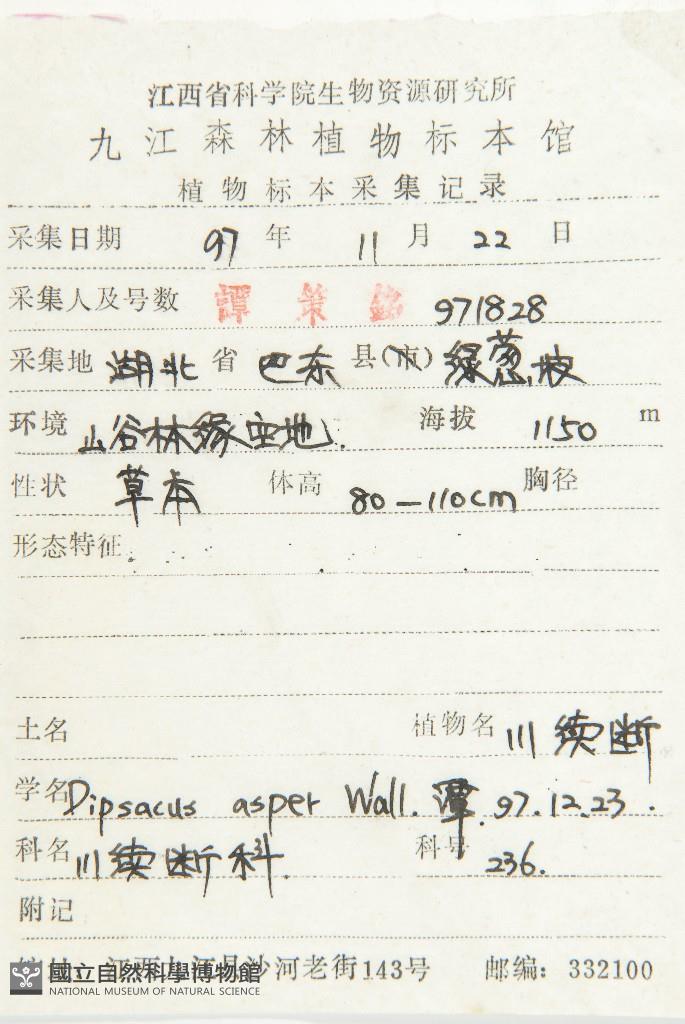 江西省科学院生物资源研究所
九江森林植物标本馆
植物标本采集记录
采集日期 97 年 11 月 22 日
采集人及号数 譚策銘 971828
采集地 湖北 省 巴东 县(市) 绿葱坡
环境 山谷林缘虫地. 海拔 1150 m
性状 草本 体高 80—110cm 胸径
形态特征
土名 植物名 川续断
学名 Dipsacus asper Wall. 谭. 97.12.23.
科名 川续断科. 科号 236.
附记
江西九江县沙河老街143号 邮编: 332100
國立自然科學博物館
NATIONAL MUSEUM OF NATURAL SCIENCE